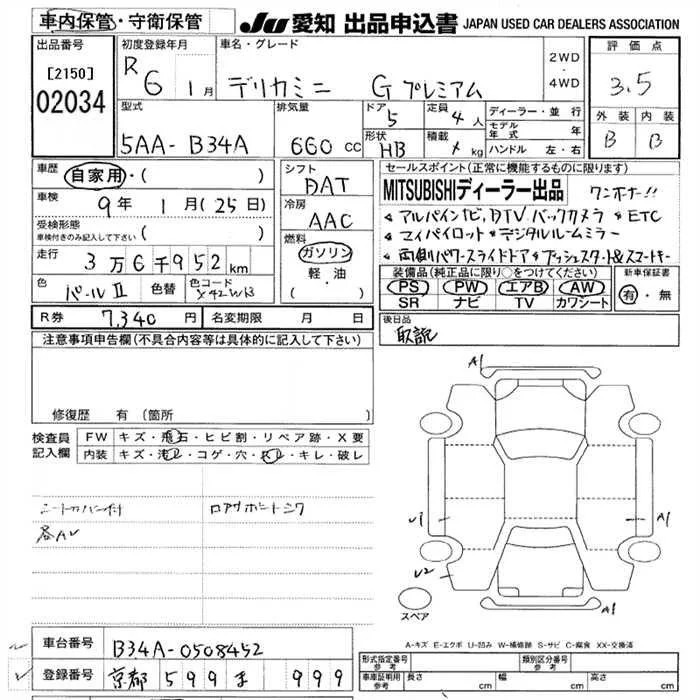 車内保管・守衛保管 JU 愛知 出品申込書 JAPAN USED CAR DEALERS ASSOCIATION
出品番号 [2150] 02034
初度登録年月 R6 1月
車名・グレード デリカミニ Gプレミアム
2WD・4WD
評価点 3.5
外装 B 内装 B
型式 5AA-B34A
排気量 660cc
ドア 5 定員 4人
形状 HB 積載 kg
ディーラー・並行
モデル年式 年
ハンドル 左・右
車歴 自家用・( )
車検 9年 1月(25日)
受検形態
車検付きのみ記入して下さい( )
走行 3万6千952km
色 パールⅡ 色替 色コード X42W13
シフト DAT
冷房 AAC
燃料 ガソリン 軽・油 ( )
セールスポイント(正常に機能するものに限ります)
MITSUBISHIディーラー出品 ワンオーナー!!
アルパインナビ,DTV バックカメラ ETC
マイパイロット デジタルルームミラー
両側パワースライドドア プッシュスタート&スマートキー
装備品(純正品に限り○をつけてください) 新車保証書
PS PW エアB AW 有・無
SR ナビ TV カワシート
R券 7,340円 名変期限 月 日
後日品 取説
注意事項申告欄(不具合内容等は具体的に記入して下さい)
修復歴 有(箇所
検査員記入欄 FW キズ・飛石・ヒビ割・リペア跡・X要
内装 キズ・汚レ・コゲ・穴・スレ・キレ・破レ
シートカバー付
各AU
A1
U1 A1
U2
A1
スペア
A-キズ E-エクボ U-凹み W-補修跡 S-サビ C-腐食 XX-交換済
車台番号 B34A-0508452
登録番号 京都 599 ま 999
形式指定番号 参考 類別区分番号 参考
車庫証明用 参考 長さ cm 幅 cm 高さ cm